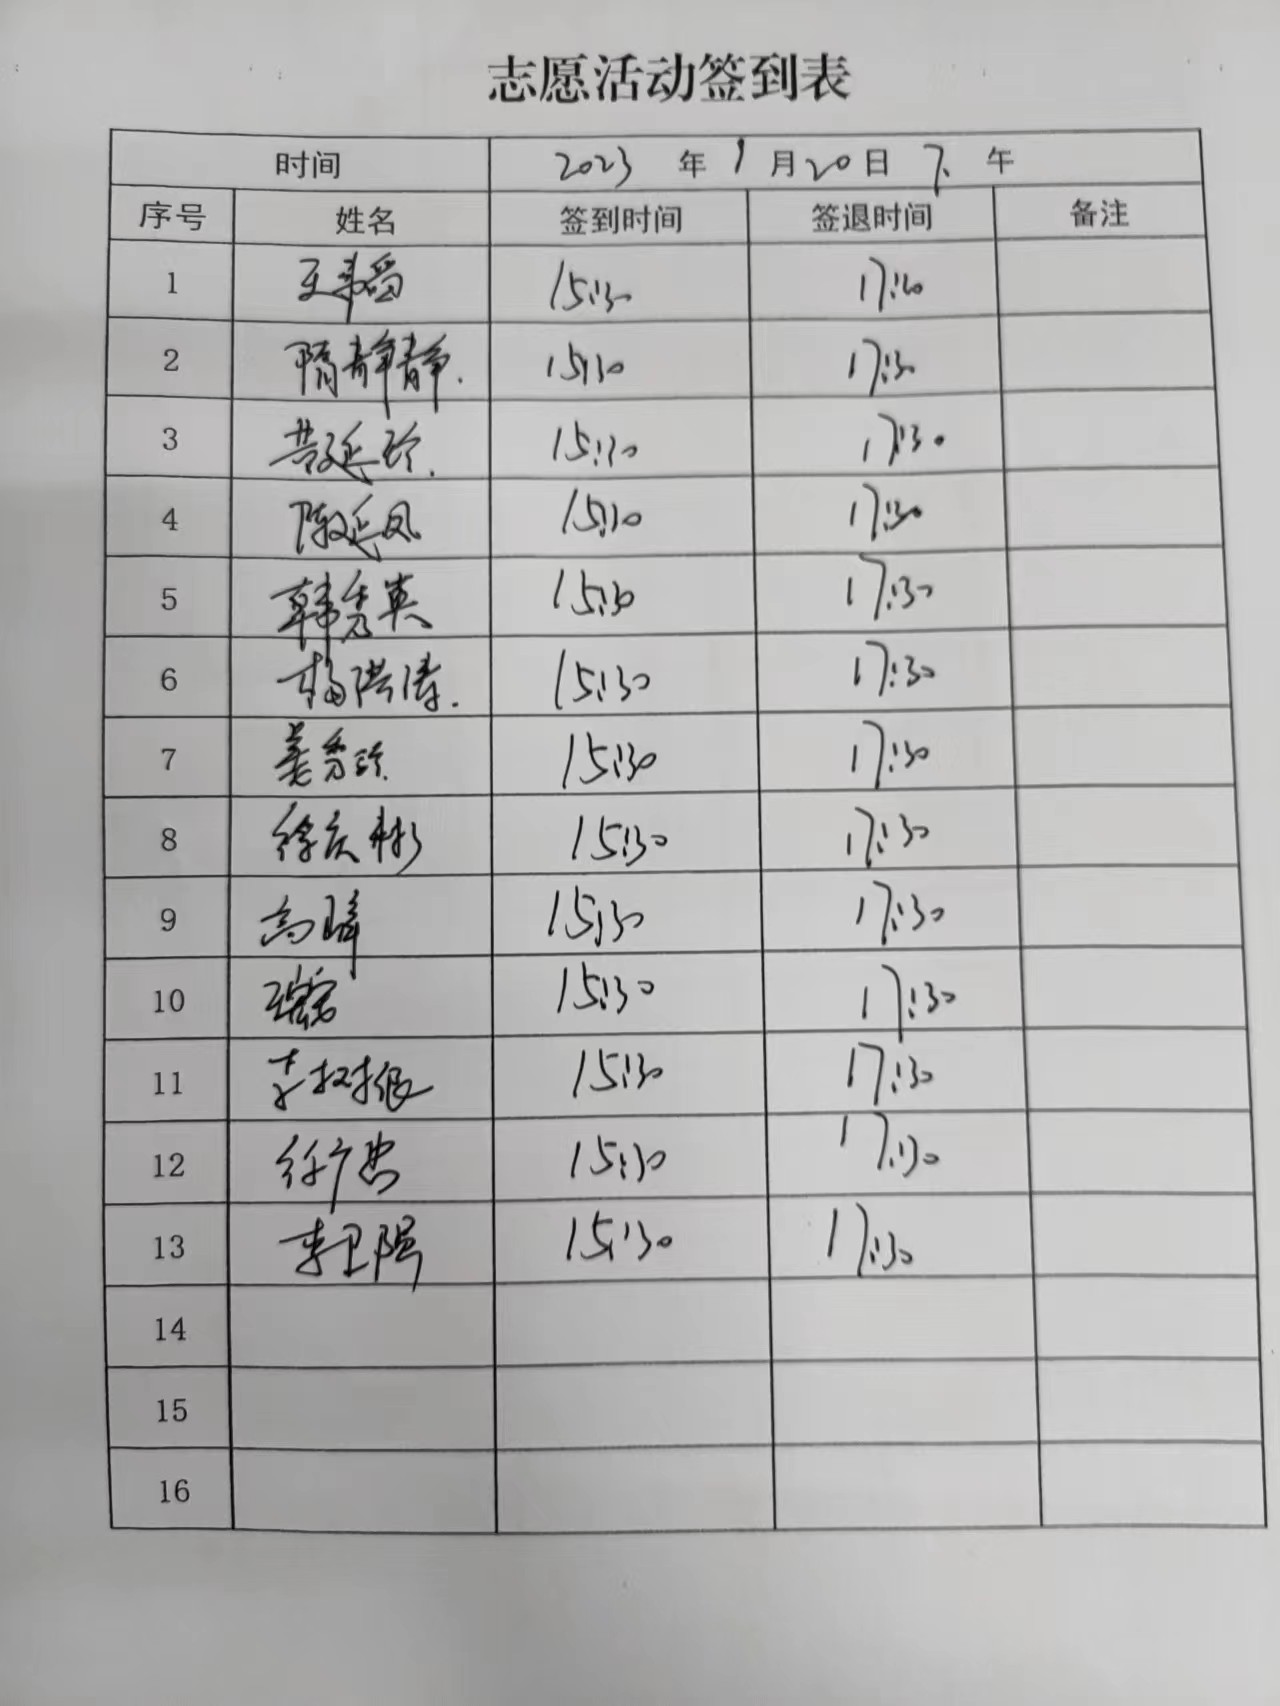 志愿活动签到表
时间 2023 年 9 月 20 日 下 午
序号 姓名 签到时间 签退时间 备注
1 15:30 17:30
2 隋静静. 15:30 17:30
3 黄延玲. 15:30 17:30
4 陈延凤 15:30 17:30
5 韩秀英 15:30 17:30
6 杨洪涛. 15:30 17:30
7 姜秀玲. 15:30 17:30
8 徐庆彬 15:30 17:30
9 高 15:30 17:30
10 15:30 17:30
11 李树银 15:30 17:30
12 徐广忠 15:30 17:30
13 李卫 15:30 17:30
14
15
16